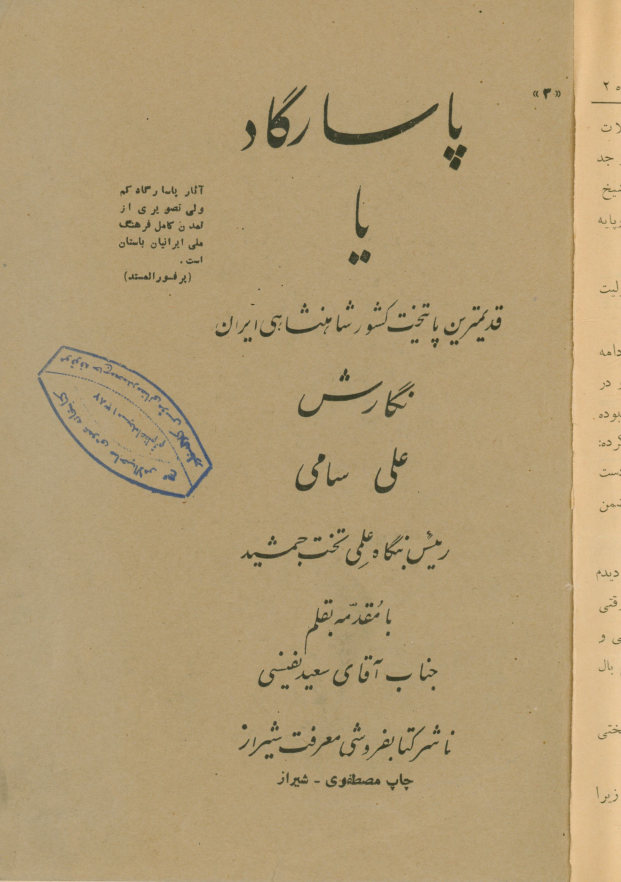 «۳»
پاسارگاد
یا
آثار پاسارگاد کم
ولی تصویری از
تمدن کامل فرهنگ
ملی ایرانیان باستان
است .
(پرفسور المستد)
قدیمترین پایتخت کشور شاهنشاهی ایران
نگارش
علی سامی
رئیس بنگاه علمی تخت جمشید
با مُقدّمه بقلم
جناب آقای سعید نفیسی
ناشر کتابفروشی معرفت شیراز
چاپ مصطفوی - شیراز
۲
لات
جد
شیخ
رپایه
لیت
دامه
در
بوده
کرده:
ست
ضمن
دیدم
وقتی
ی و
بال
ختی
زیرا